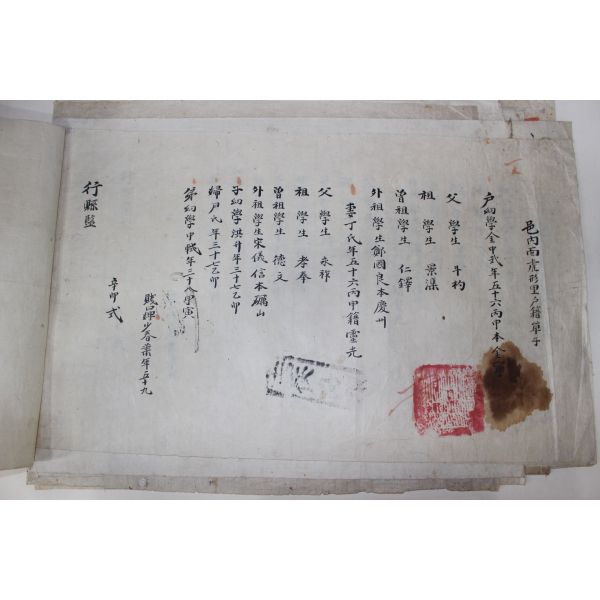 邑內面虎形里戶籍草子
戶幼學金中弐年五十六丙申本金
父 學生 斗杓
祖 學生 景濂
曾祖學生 仁鐸
外祖學生鄭國良本慶州
妻丁氏年五十六丙申籍靈光
父 學生 永
祖 學生 孝奉
曾祖學生 德文
外祖學生宋儀信本礪山
子幼學洪升年三十七乙卯
婦尹氏年三十七乙卯
弟幼學中 年三十八甲寅
婢 春葉年五十九
辛卯式
行縣監